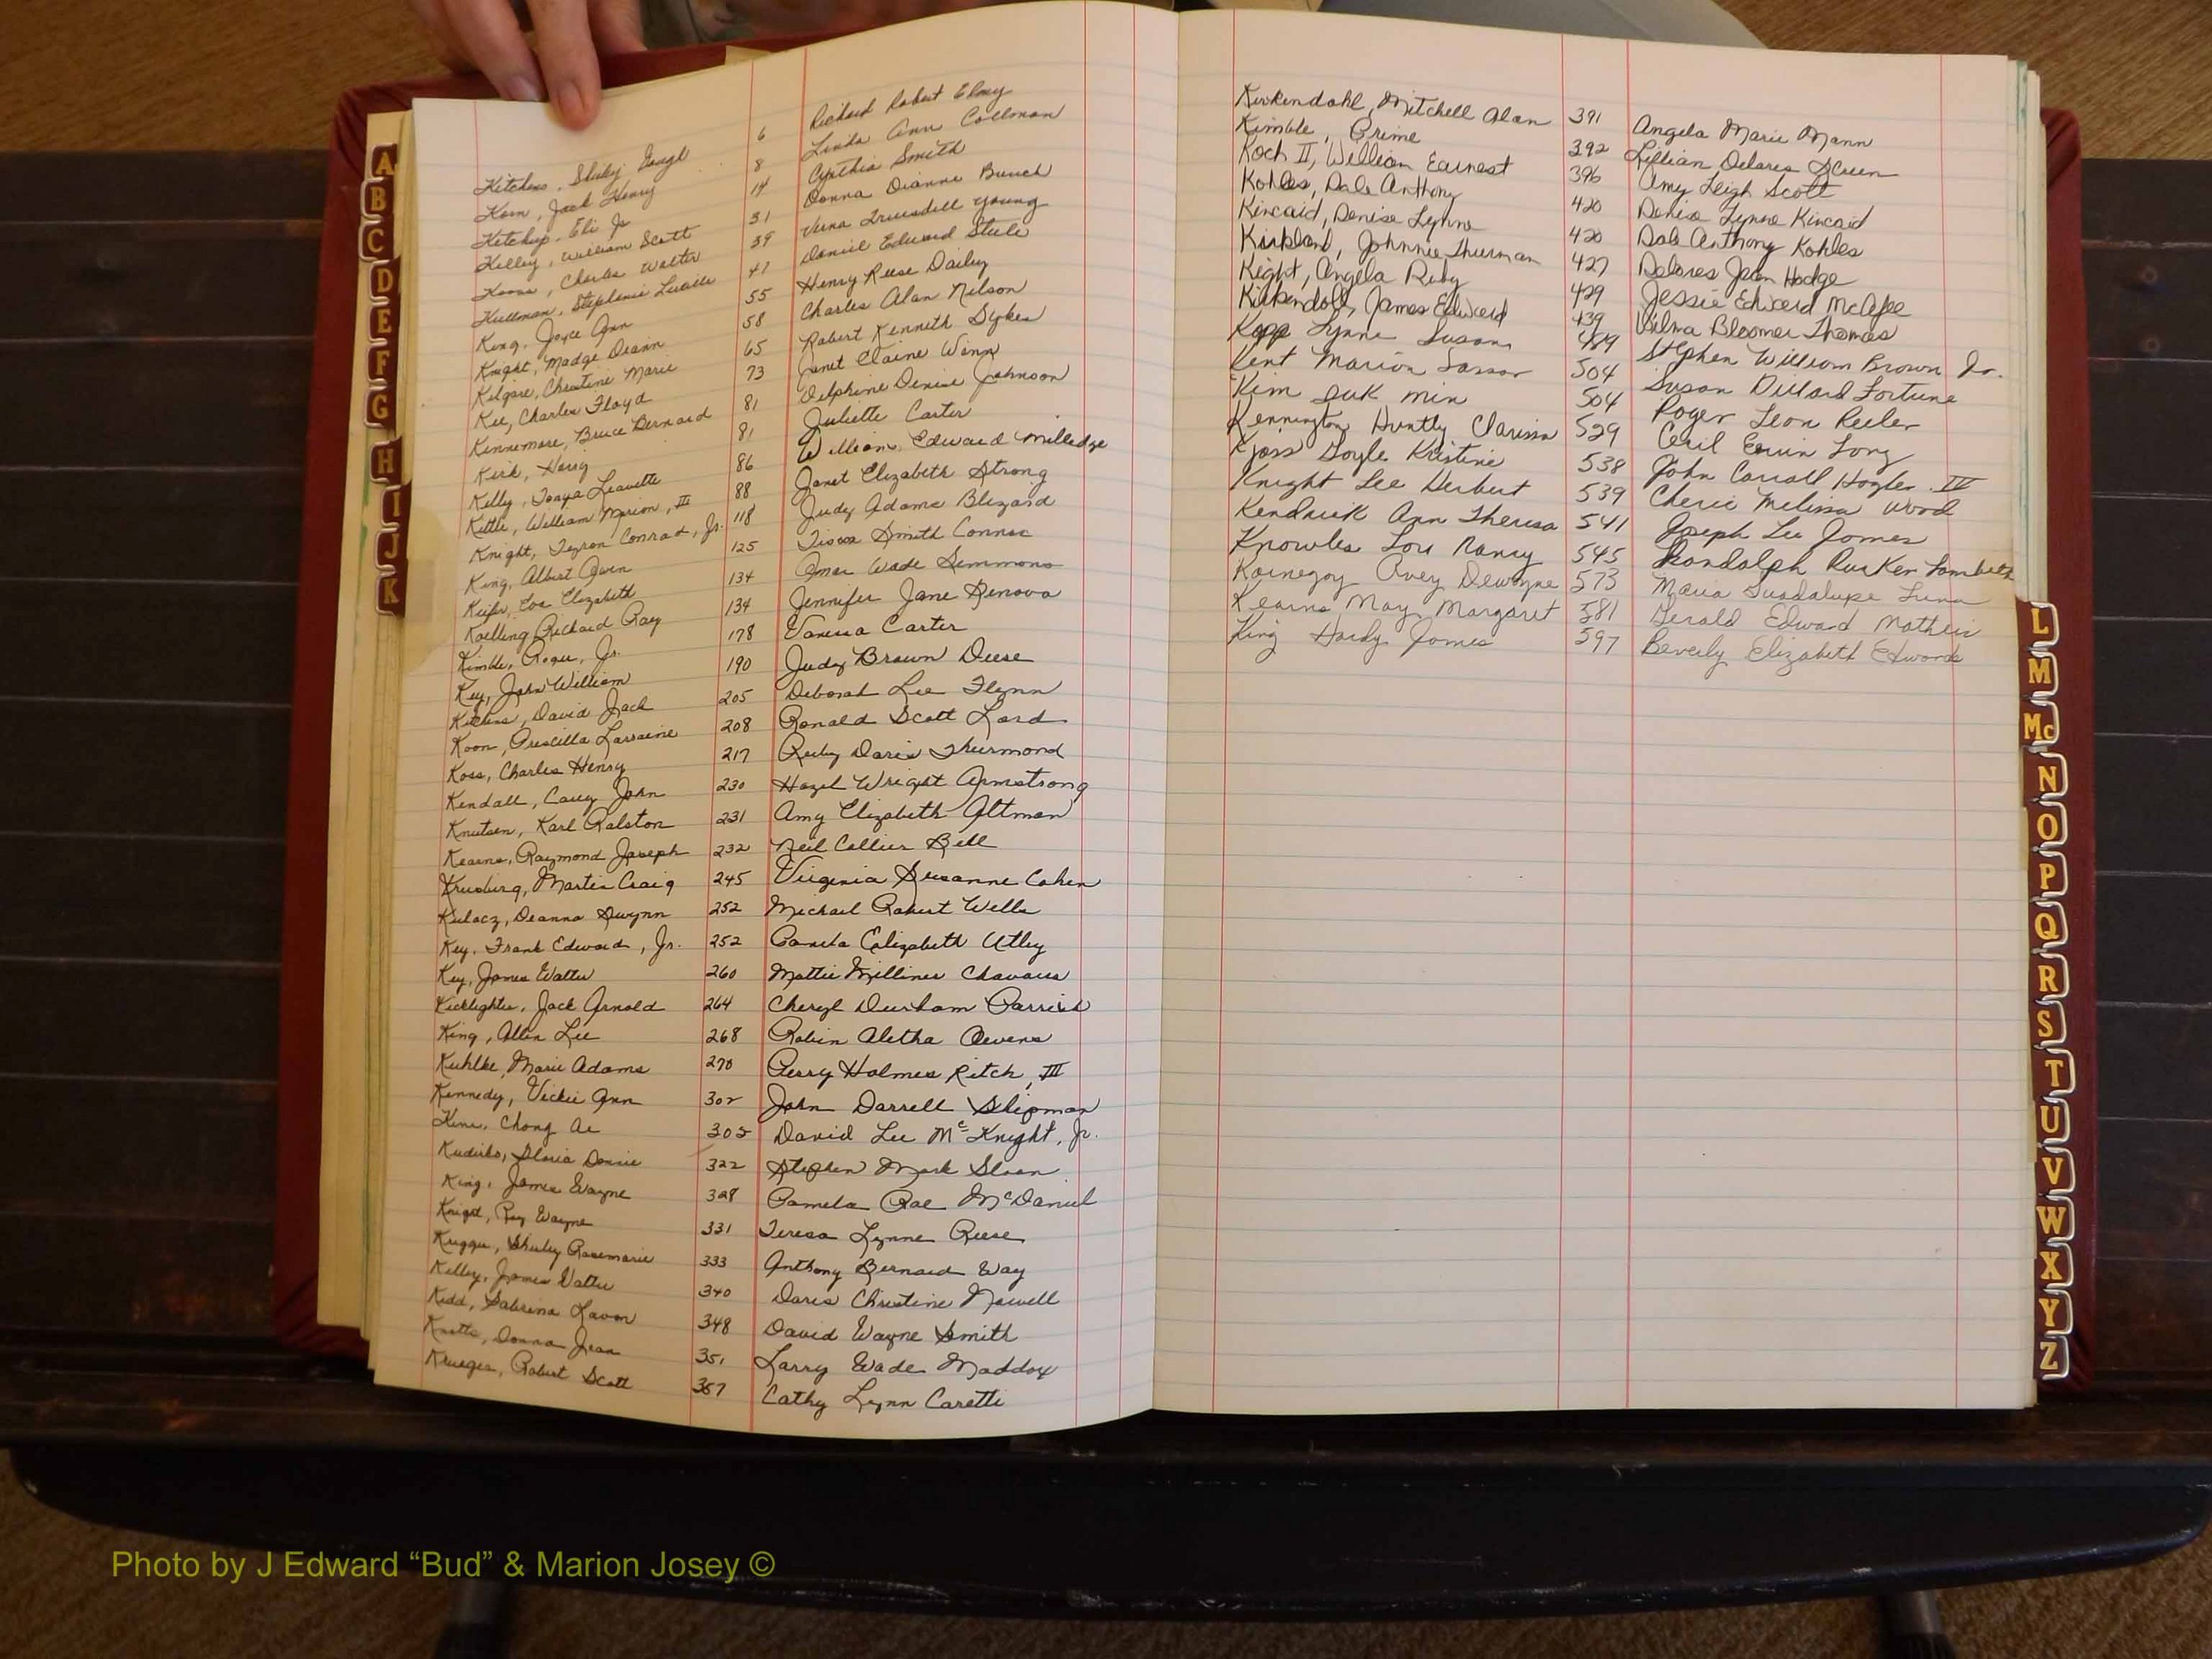 A
B
C
D
E
F
G
H
I
J
K
Kitchens, 6 Richard Robert Elmy
Koon, Jack Henry 8 Linda Ann Collman
Ketchup, Eli Jr 14 Cynthia Smith
Kelley, William Scott 31 Donna Dianne Bunch
Koons, Charles Walter 39 Verna Truesdell Young
Kullman, Stephenie Lucille 47 Daniel Edward Steele
King, Joyce Ann 55 Henry Reese Dailey
Knight, Madge Deann 58 Charles Alan Nelson
Kilgore, Christine Marie 65 Robert Kenneth Sykes
Kee, Charles Floyd 73 Janet Elaine Winn
Kennemore, Bruce Bernard 81 Delphine Denise Johnson
Kirk, Harry 81 Juliette Carter
Kelly, Tonya Leavette 86 William Edward Milledge
Kittle, William Marion, III 88 Janet Elizabeth Strong
Knight, Tyron Conrad, Jr. 118 Judy Adams Blizard
King, Albert Owen 125 Smith Conner
Keifer, Eva Elizabeth 134 Omar Wade Simmons
Koelling Richard Ray 134 Jennifer Jane Renova
Kimble, Roger, Jr. 178 Vanessa Carter
Key, John William 190 Judy Brown Deese
Kitchens, David Jack 205 Deborah Lee Flynn
Koon, Priscilla Larraine 208 Ronald Scott Lord
Koss, Charles Henry 217 Ruby Doris Thurmond
Kendall, Casey John 230 Hazel Wright Armstrong
Knutsen, Karl Ralston 231 Amy Elizabeth Altman
Kearns, Raymond Joseph 232 Neil Collier Bell
Krusberg, Martin Craig 245 Virginia Susanne Cohen
Kulacz, Deanna Gwynn 252 Michael Robert Wells
Key, Frank Edward, Jr. 252 Pamela Elizabeth Utley
Key, James Walter 260 Mattie Milliner Chavous
Kicklighter, Jack Arnold 264 Cheryl Durham Parrish
King, Allen Lee 268 Robin Aletha Owens
Kuhlke, Marie Adams 270 Perry Holmes Ritch, III
Kennedy, Vickie Ann 302 John Darrell Shipman
Kim, Chong Ae 305 David Lee McKnight, Jr.
Kudirko, Gloria Donnie 322 Stephen Mark Sloan
King, James Wayne 328 Pamela Rae McDaniel
Knight, Roy Wayne 331 Teresa Lynne Reese
Shirley Rosemarie 333 Anthony Bernard Way
Kelley, James Walter 340 Doris Christine Nowell
Kidd, Sabrina Lavon 348 David Wayne Smith
Knotts, Donna Jean 351 Larry Wade Maddox
Krueger, Robert Scott 357 Cathy Lynn Caretti
Kirkendohl, Mitchell Alan 391 Angela Marie Mann
Kimble, Prime 392 Lillian Delores Green
Koch II, William Earnest 396 Amy Leigh Scott
Kohles, Dale Anthony 420 Denise Lynne Kincaid
Kincaid, Denise Lynne 420 Dale Anthony Kohles
Kirkland, Johnnie Thurman 427 Delores Jean Hodge
Kight, Angela Ruby 429 Jessie Edward McAfee
Kirkendoll, James Edward 439 Wilma Bloomer Thomas
Kopp Lynne Susan 489 Stephen William Brown Jr.
Kent Marion Sasser 504 Susan Dillard Fortune
Kim Suk Min 504 Roger Leon Reeler
Kennington Huntly Clarissa 529 Cecil Ervin Long
Kjoss Goyle Kristine 538 John Carroll Hogler IV
Knight Lee Herbert 539 Cherie Melissa Wood
Kendrick Ann Theresa 541 Joseph Lee Jones
Knowles Lou Nancy 545 Randolph Rucker Lambeth
Kornegay Avey Dewayne 573 Maria Guadalupe Luna
Kearns May Margaret 581 Gerald Edward Matheis
King Hardy James 597 Beverly Elizabeth Edwards
L
M
Mc
N
O
P
Q
R
S
T
U
V
W
X
Y
Z
Photo by J Edward “Bud” & Marion Josey ©